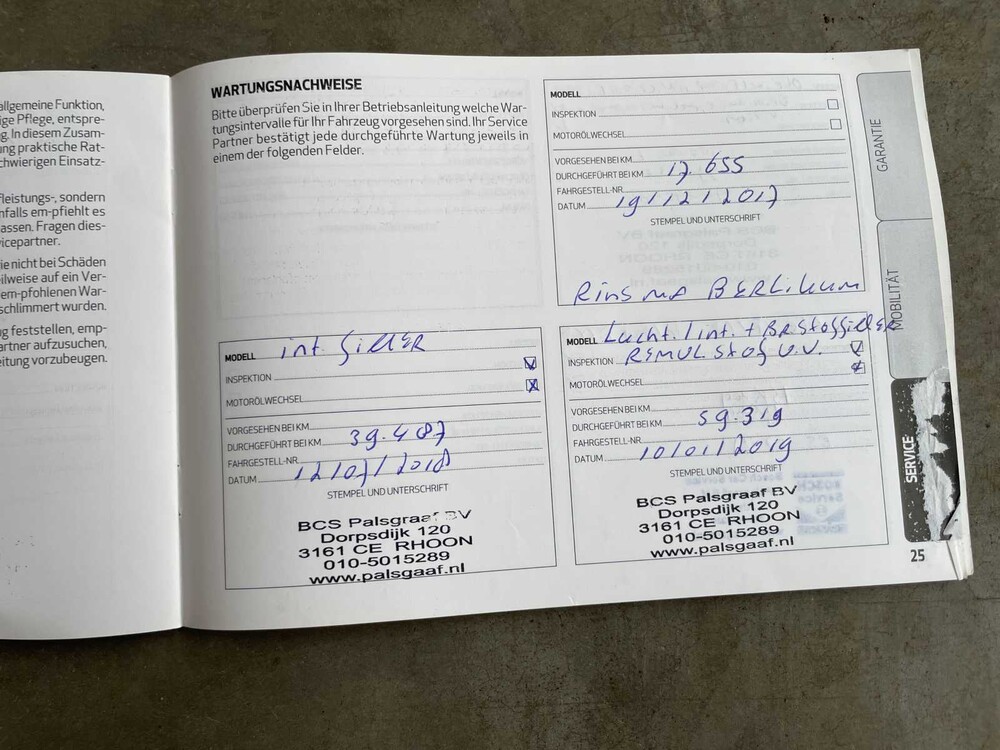 allgemeine Funktion,
ige Pflege, entspre-
g. In diesem Zusam-
ung praktische Rat-
chwierigen Einsatz-
fleistungs-, sondern
nfalls em-pfiehlt es
assen. Fragen dies-
vicepartner.
ie nicht bei Schäden
eilweise auf ein Ver-
em-pfohlenen War-
schlimmert wurden.
ng feststellen, emp-
artner aufzusuchen,
eitung vorzubeugen.
WARTUNGSNACHWEISE
Bitte überprüfen Sie in Ihrer Betriebsanleitung welche War-
tungsintervalle für Ihr Fahrzeug vorgesehen sind. Ihr Service
Partner bestätigt jede durchgeführte Wartung jeweils in
einem der folgenden Felder.
MODELL
INSPEKTION
MOTORÖLWECHSEL
VORGESEHEN BEI KM
DURCHGEFÜHRT BEI KM 17.655
FAHRGESTELL-NR
DATUM 19/12/2017
STEMPEL UND UNTERSCHRIFT
Rinsma BERLikum
MODELL int. filter
INSPEKTION
MOTORÖLWECHSEL
VORGESEHEN BEI KM
DURCHGEFÜHRT BEI KM 39.487
FAHRGESTELL-NR
DATUM 12/07/2018
STEMPEL UND UNTERSCHRIFT
BCS Palsgraaf BV
Dorpsdijk 120
3161 CE RHOON
010-5015289
www.palsgaaf.nl
MODELL Lucht. / int. + BRStoffilter
INSPEKTION REMVLStof V.V.
MOTORÖLWECHSEL
VORGESEHEN BEI KM
DURCHGEFÜHRT BEI KM 59.319
FAHRGESTELL-NR
DATUM 10/01/2019
STEMPEL UND UNTERSCHRIFT
BCS Palsgraaf BV
Dorpsdijk 120
3161 CE RHOON
010-5015289
www.palsgaaf.nl
GARANTIE
MOBILITÄT
SERVICE
25